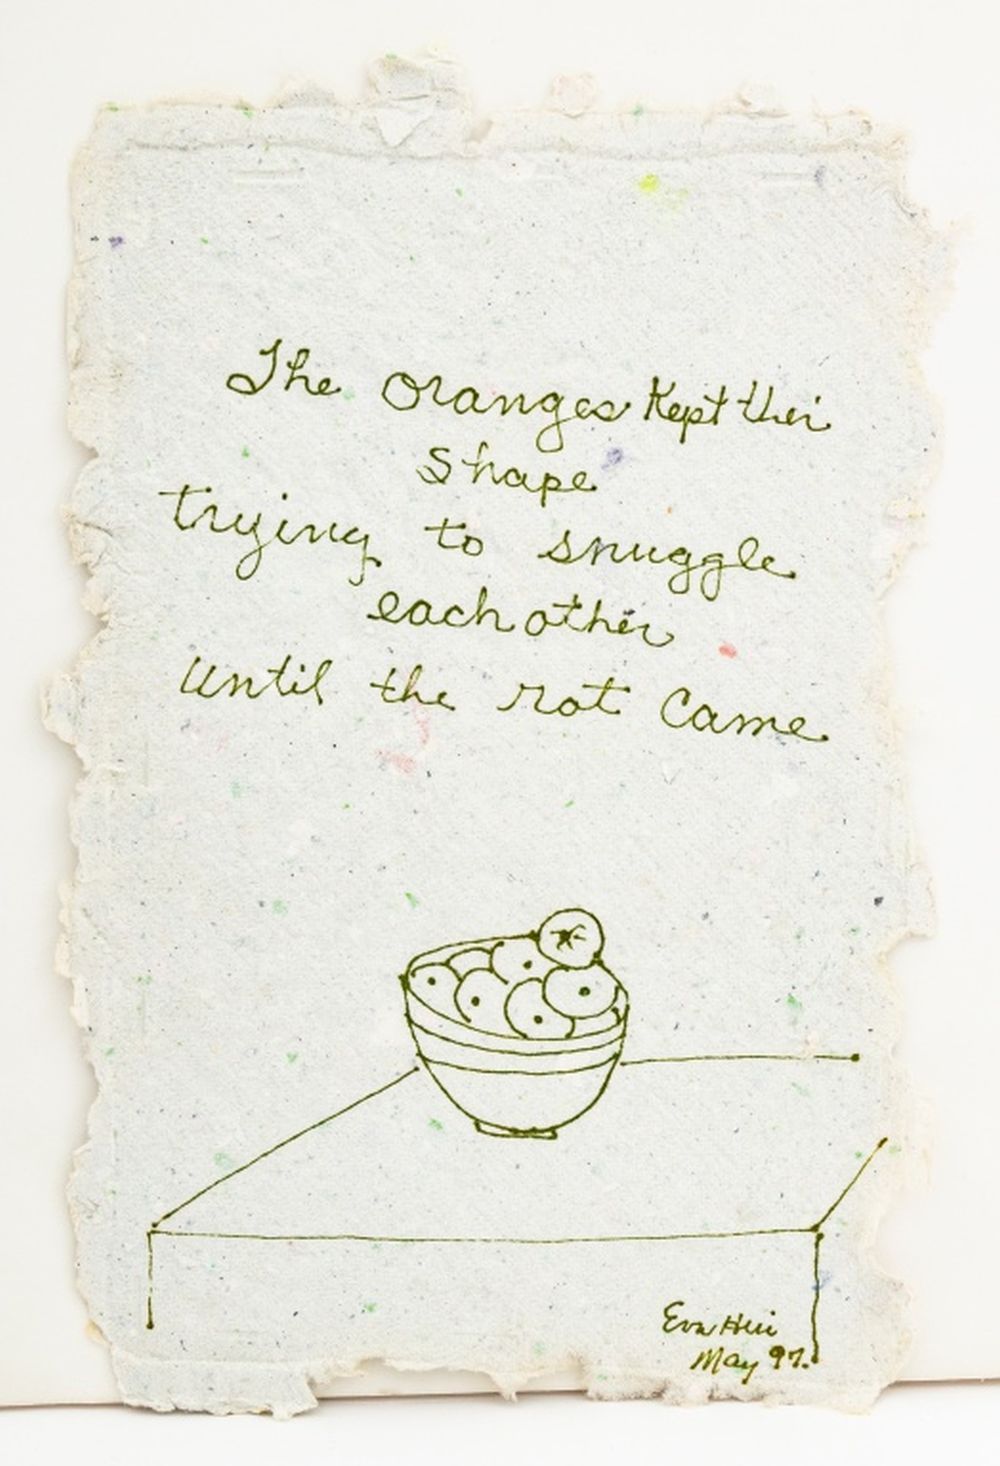 The oranges kept their
shape
trying to snuggle
each other
until the rot came
Eva Hui
May 97.